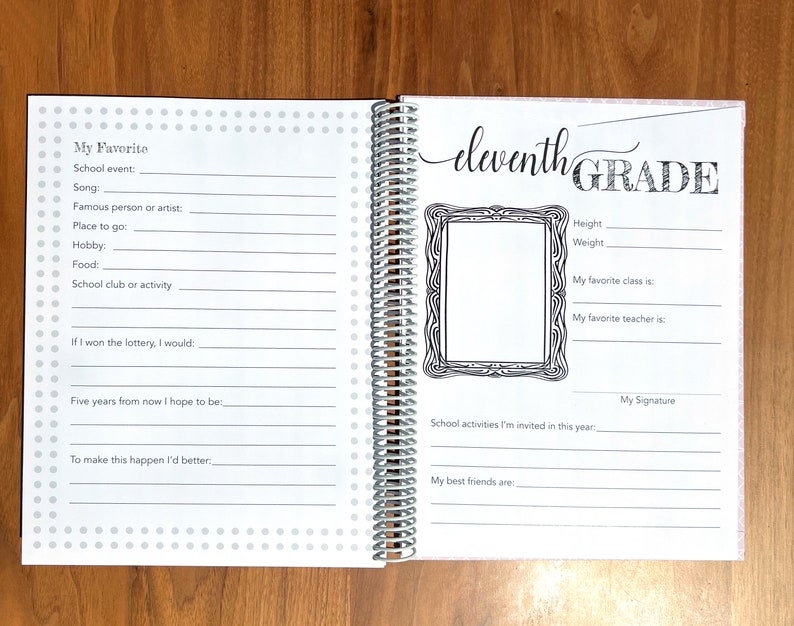 My Favorite
School event:
Song:
Famous person or artist:
Place to go:
Hobby:
Food:
School club or activity
If I won the lottery, I would:
Five years from now I hope to be:
To make this happen I'd better:
eleventh GRADE
Height
Weight
My favorite class is:
My favorite teacher is:
My Signature
School activities I'm invited in this year:
My best friends are: